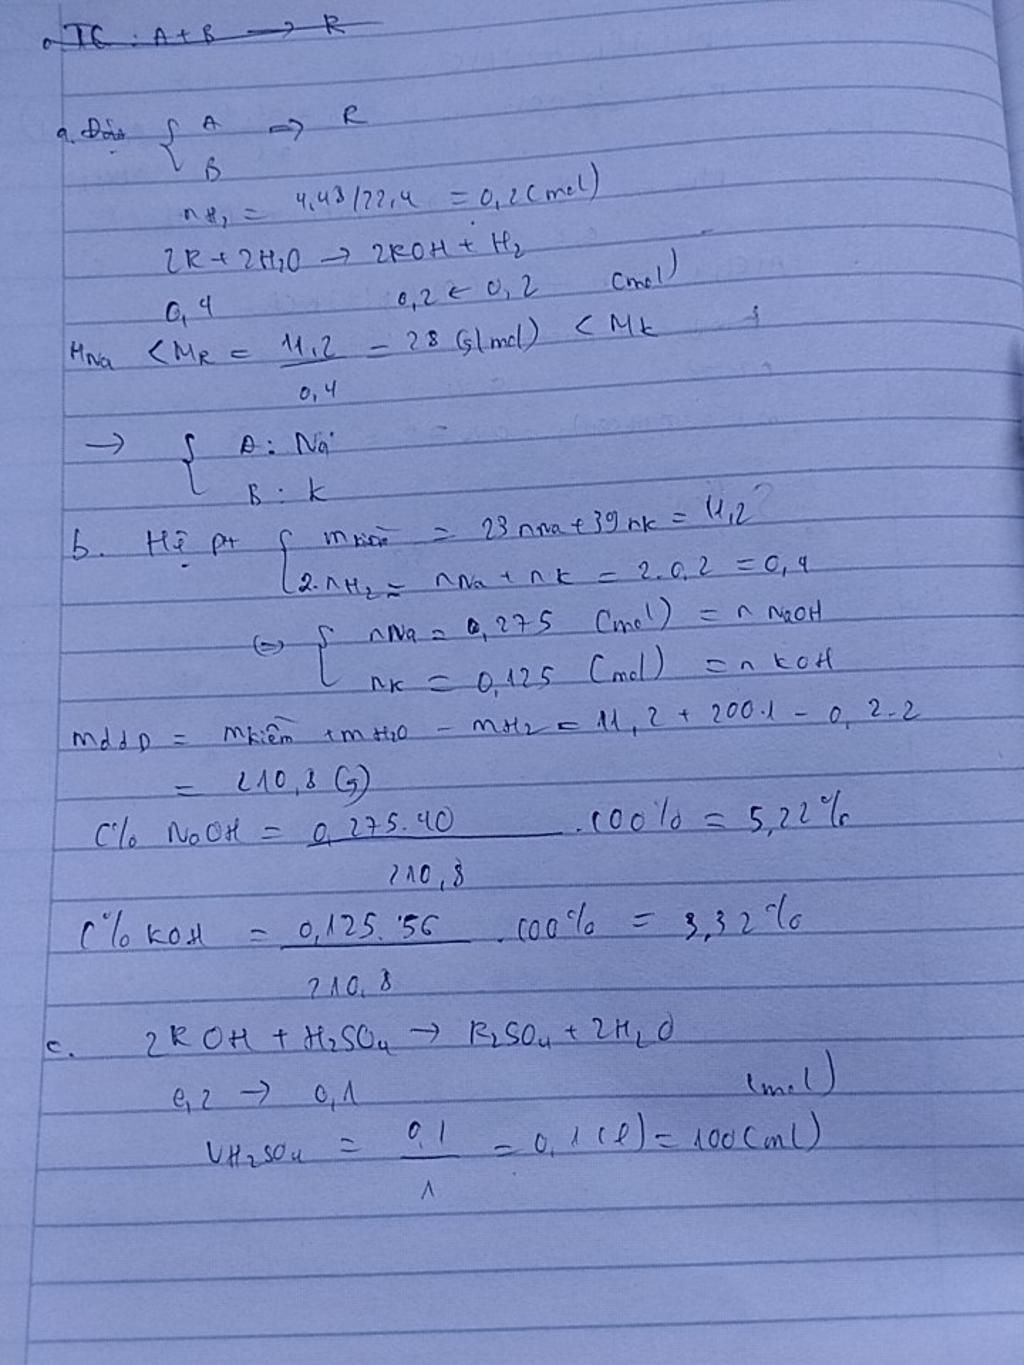 TC : A + B → R
a. Đặt { A => R
B
nH2 = 4,48/22,4 = 0,2 (mol)
2R + 2H2O → 2ROH + H2
0,4 0,2 ← 0,2 (mol)
MNa < MR = 11,2/0,4 = 28 (g/mol) < MK
→ { A : Na
B : K
b. Hệ pt { m kiềm = 23 nNa + 39 nK = 11,2
2.nH2 = nNa + nK = 2.0,2 = 0,4
<=> { nNa = 0,275 (mol) = n NaOH
nK = 0,125 (mol) = n KOH
mddD = mkiềm + mH2O - mH2 = 11,2 + 200.1 - 0,2.2
= 210,8 (G)
C% NaOH = 0,275.40/210,8 .100% = 5,22%
C% KOH = 0,125.56/210,8 .100% = 3,32%
c. 2ROH + H2SO4 → R2SO4 + 2H2O
0,2 → 0,1 (mol)
VH2SO4 = 0,1/1 = 0,1 (l) = 100 (ml)